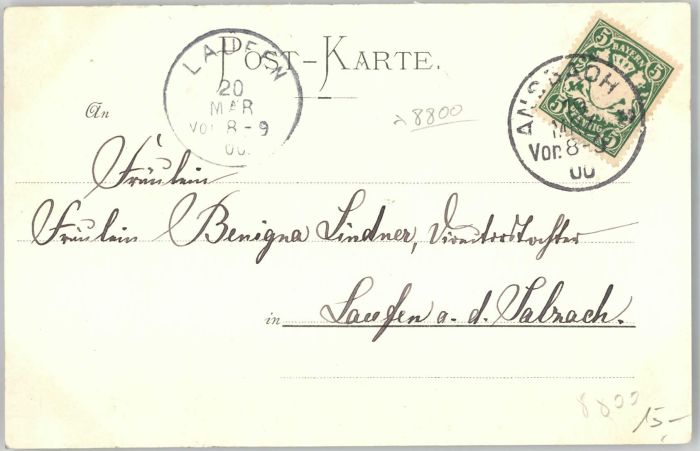 POST-KARTE.
LAUFEN
20
MÄR
Vor. 8-9
00.
5 BAYERN 5
5 5
ANSBACH
Vor. 8-9
00
8800
An
Fräulein
Fräulein Benigna Lindner, Direktorstochter
in Laufen a. d. Salzach.
8800
15,-